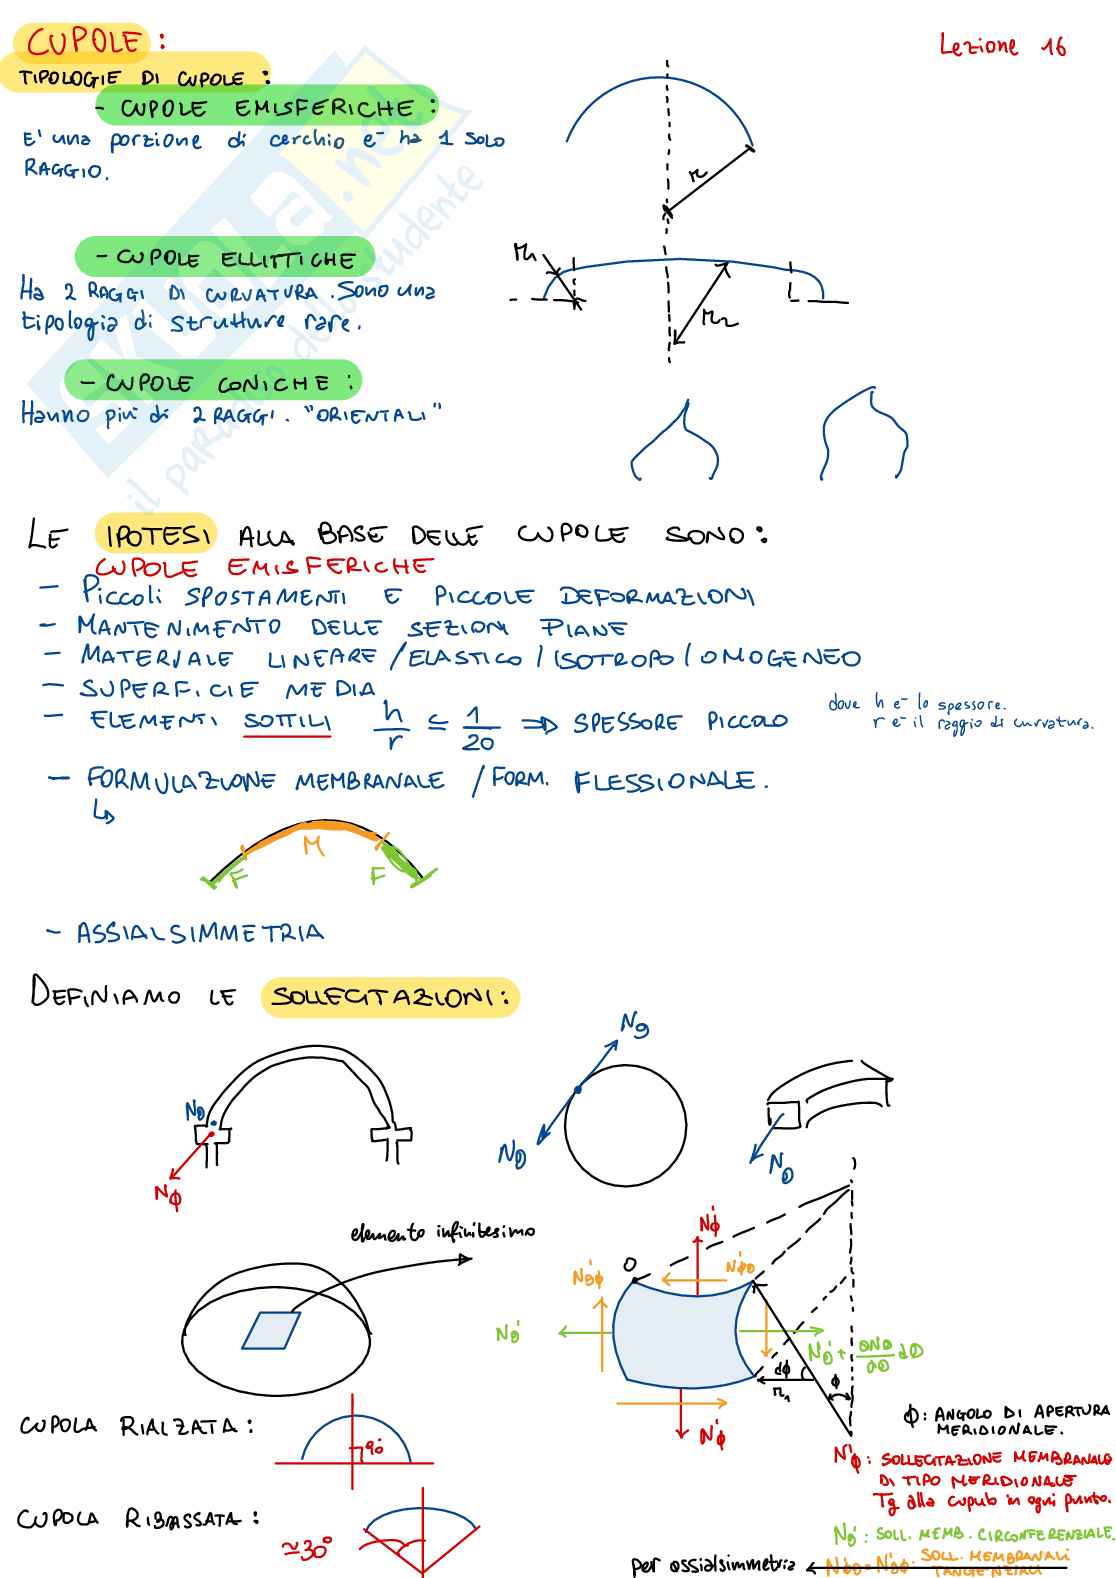 CUPOLE:
Lezione 16
TIPOLOGIE DI CUPOLE:
- CUPOLE EMISFERICHE:
E' una porzione di cerchio e- ha 1 SOLO
RAGGIO.
r
- CUPOLE ELLITTICHE
Ha 2 RAGGI DI CURVATURA. Sono una
tipologia di strutture rare.
r1
r2
- CUPOLE CONICHE:
Hanno più di 2 RAGGI. "ORIENTALI"
SKUOLA.net
il paradiso dello studente
LE IPOTESI ALLA BASE DELLE CUPOLE SONO:
CUPOLE EMISFERICHE
- Piccoli SPOSTAMENTI E PICCOLE DEFORMAZIONI
- MANTENIMENTO DELLE SEZIONI PIANE
- MATERIALE LINEARE / ELASTICO / ISOTROPO / OMOGENEO
- SUPERFICIE MEDIA
- ELEMENTI SOTTILI h/r ≤ 1/20 ⇒ SPESSORE PICCOLO
dove h e- lo spessore.
r e- il raggio di curvatura.
- FORMULAZIONE MEMBRANALE / FORM. FLESSIONALE.
F M F
- ASSIALSIMMETRIA
DEFINIAMO LE SOLLECITAZIONI:
Nθ
Nϕ
Nθ
Nθ
Nθ
elemento infinitesimo
O
N'ϕ
N'θϕ
N'ϕθ
N'θ
N'θ + ∂Nθ/∂θ dθ
dϕ
ϕ
r1
N'ϕ
CUPOLA RIALZATA:
90°
ϕ: ANGOLO DI APERTURA
MERIDIONALE.
N'ϕ: SOLLECITAZIONE MEMBRANALE
DI TIPO MERIDIONALE
Tg alla cupola in ogni punto.
CUPOLA RIBASSATA:
≃30°
N'θ: SOLL. MEMB. CIRCONFERENZIALE.
per assialsimmetria
N'ϕθ = N'θϕ: SOLL. MEMBRANALI
TANGENZIALI